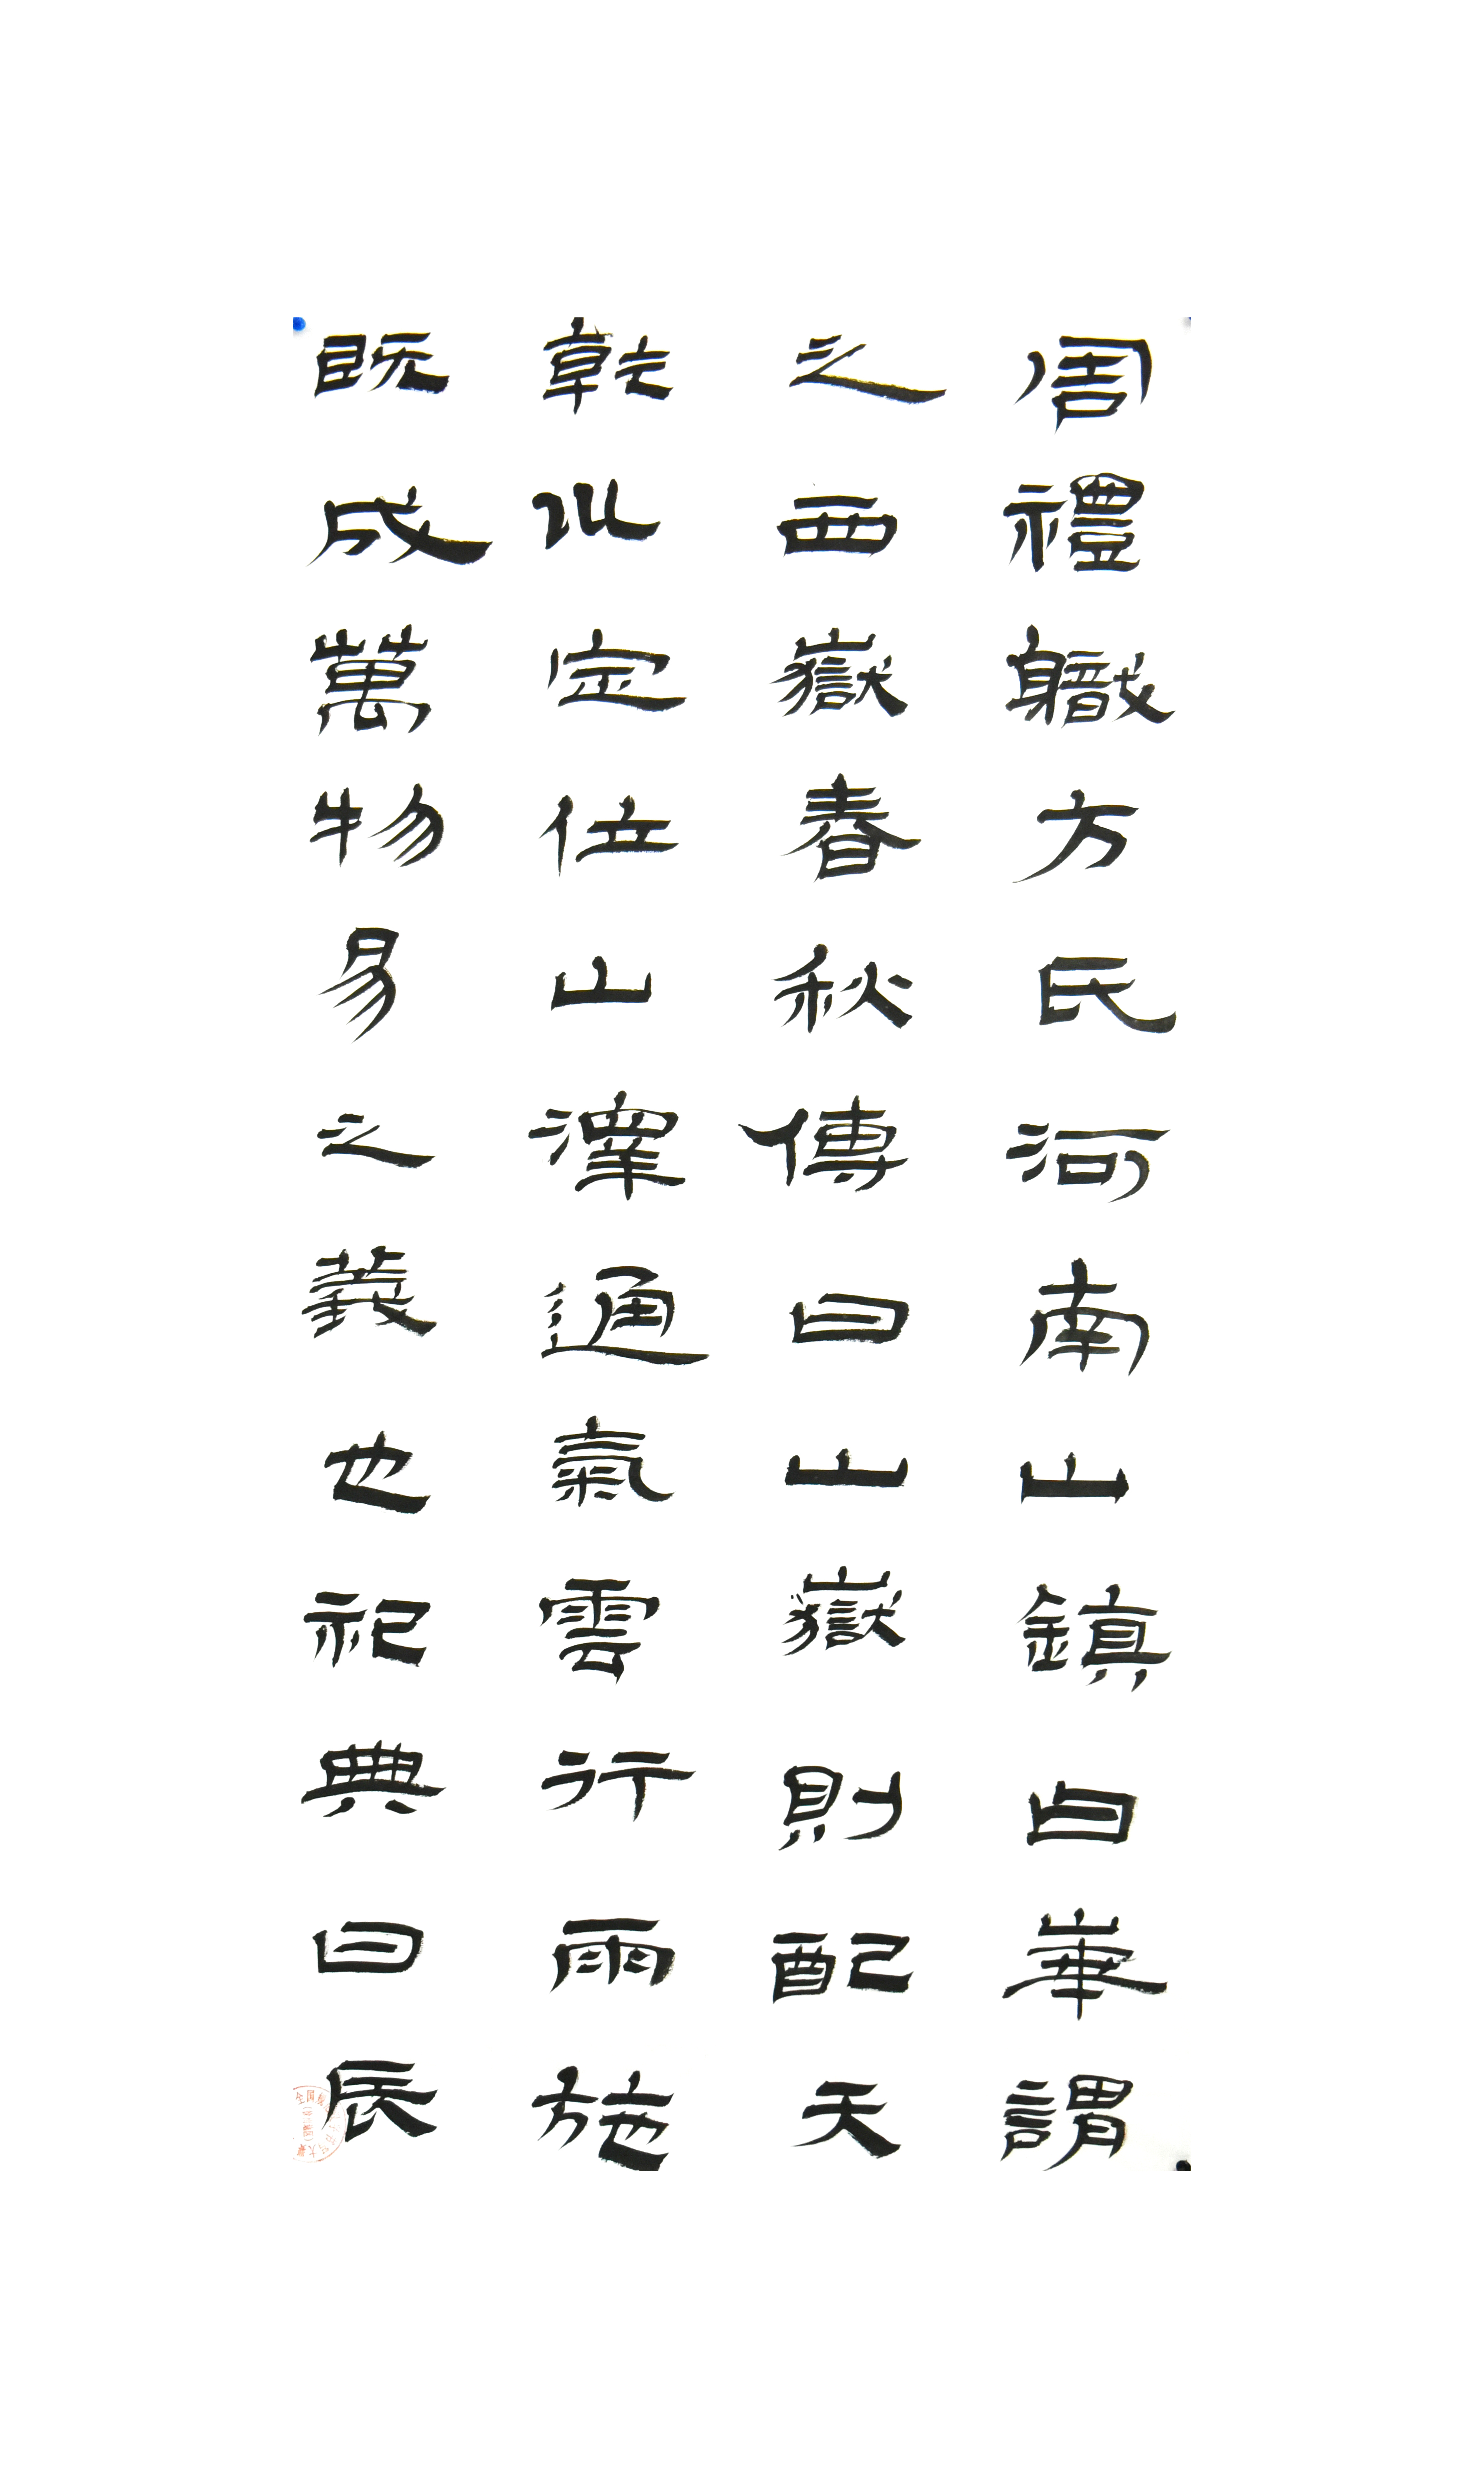 周禮職方氏河南山鎮曰華謂
之西嶽春秋傳曰山嶽則配天
乾㠯定位山澤通氣雲行雨施
既成萬物易之義也祀典曰辰